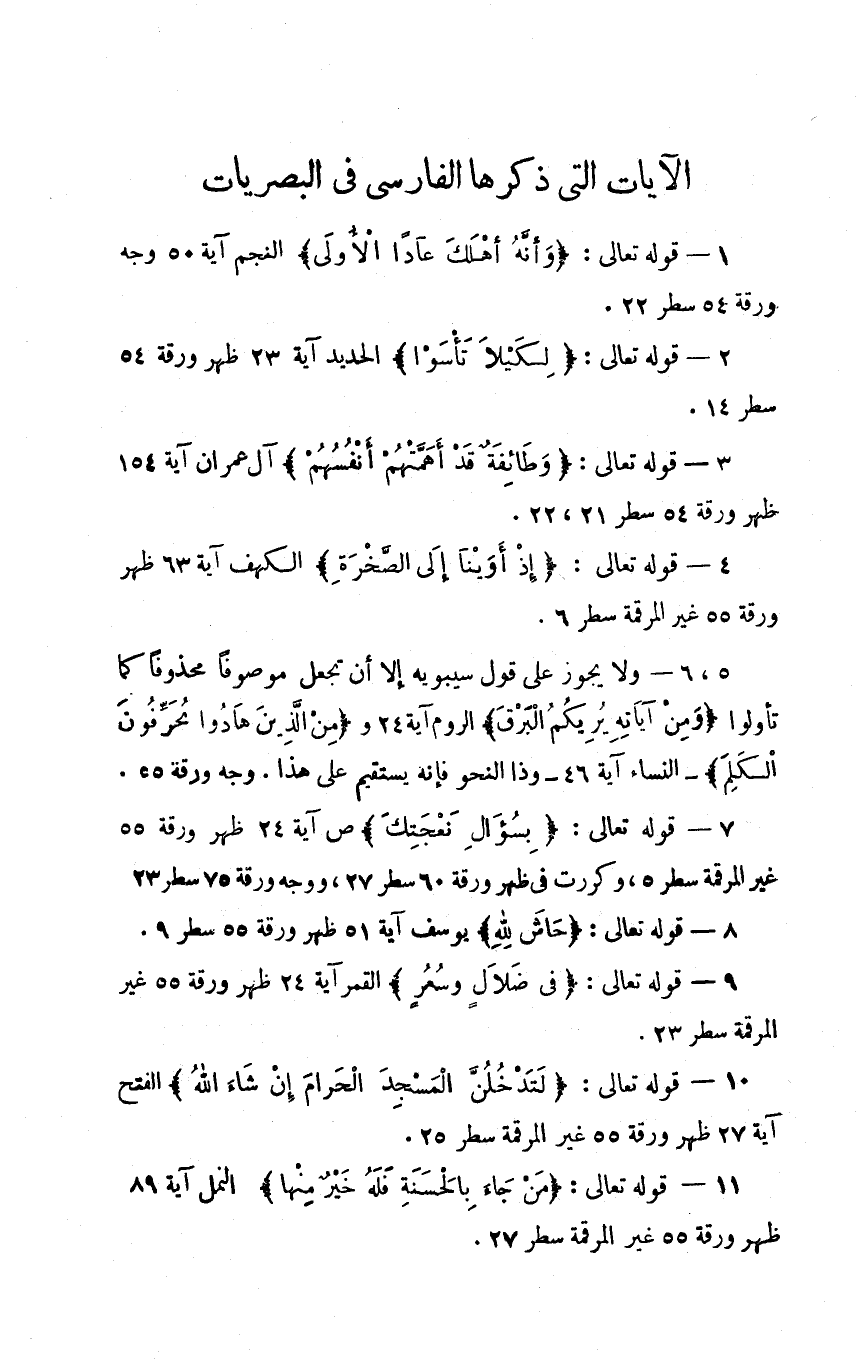 الآيات التى ذكرها الفارسى فى البصريات
١ — قوله تعالى : ﴿وَأنَّهُ أهْلَكَ عَادًا الْأُولَى﴾ النجم آية ٥٠ وجه
ورقة ٥٤ سطر ٢٢ .
٢ — قوله تعالى : ﴿ لِـكَيْلاَ تَأْسَوْا ﴾ الحديد آية ٢٣ ظهر ورقة ٥٤
سطر ١٤ .
٣ — قوله تعالى : ﴿ وَطَائِفَةٌ قَدْ أَهَمَّتْهُمْ أَنْفُسُهُمْ ﴾ آل عمران آية ١٥٤
ظهر ورقة ٥٤ سطر ٢١ ، ٢٢ .
٤ — قوله تعالى : ﴿ إِذْ أَوَيْنَا إِلَى الصَّخْرَةِ ﴾ الـكهف آية ٦٣ ظهر
ورقة ٥٥ غير المرقمة سطر ٦ .
٥ ، ٦ — ولا يجوز على قول سيبويه إلا أن تجعل موصوفاً محذوفاً كما
تأولوا ﴿وَمِنْ آيَاتِهِ يُرِيكُمُ الْبَرْقَ﴾ الروم آية ٢٤ و ﴿مِنْ الَّذِينَ هَادُوا يُحَرِّفُونَ
الْـكَلِمَ﴾ ـ النساء آية ٤٦ ـ وذا النحو فإنه يستقيم على هذا . وجه ورقة ٥٥ .
٧ — قوله تعالى : ﴿ بِسُؤَالِ نَعْجَتِكَ ﴾ ص آية ٢٤ ظهر ورقة ٥٥
غير المرقمة سطر ٥ ، وكررت فى ظهر ورقة ٦٠ سطر ٢٧ ، ووجه ورقة ٧٥ سطر ٢٣
٨ — قوله تعالى : ﴿حَاشَ لِلهِ﴾ يوسف آية ٥١ ظهر ورقة ٥٥ سطر ٩ .
٩ — قوله تعالى : ﴿ فى ضَلاَلٍ وسُعُرٍ ﴾ القمر آية ٢٤ ظهر ورقة ٥٥ غير
المرقمة سطر ٢٣ .
١٠ — قوله تعالى : ﴿ لَتَدْخُلُنَّ الْمَسْجِدَ الْحَرامَ إِنْ شَاءَ اللهُ ﴾ الفتح
آية ٢٧ ظهر ورقة ٥٥ غير المرقمة سطر ٢٥ .
١١ — قوله تعالى : ﴿مَنْ جَاءَ بِالْحَسَنَةِ فَلَهُ خَيْرٌ مِنْها ﴾ النمل آية ٨٩
ظهر ورقة ٥٥ غير المرقمة سطر ٢٧ .